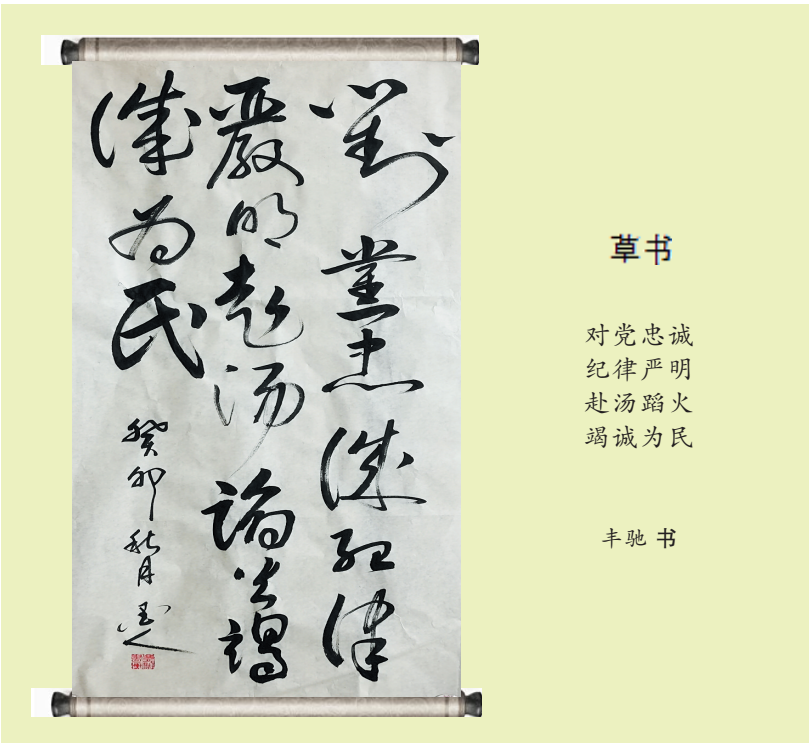 對黨忠诚纪律
嚴明赴汤蹈火竭
诚为民
癸卯秋月
草书
对党忠诚
纪律严明
赴汤蹈火
竭诚为民
丰驰 书